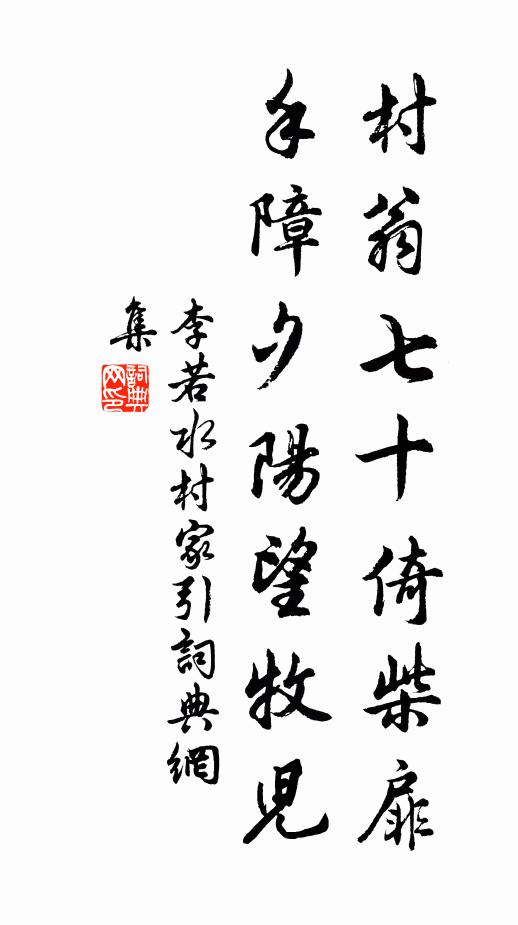 村翁七十倚柴扉
手障夕陽望牧兒
李若水村家引詞典網
集
詞典
网印